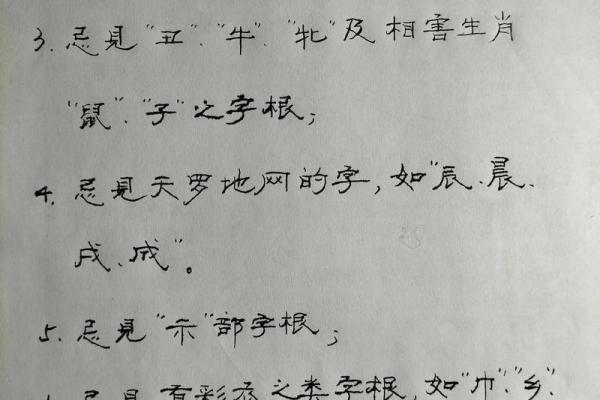 3. 忌見"丑"、"牛"、"牝"及相害生肖
"鼠"、"子"之字根;
4. 忌見天罗地网的字,如"辰、晨、
戌、成"。
5. 忌見"示"部字根;
忌見有彩衣之类字根,如"巾"、"乡"、